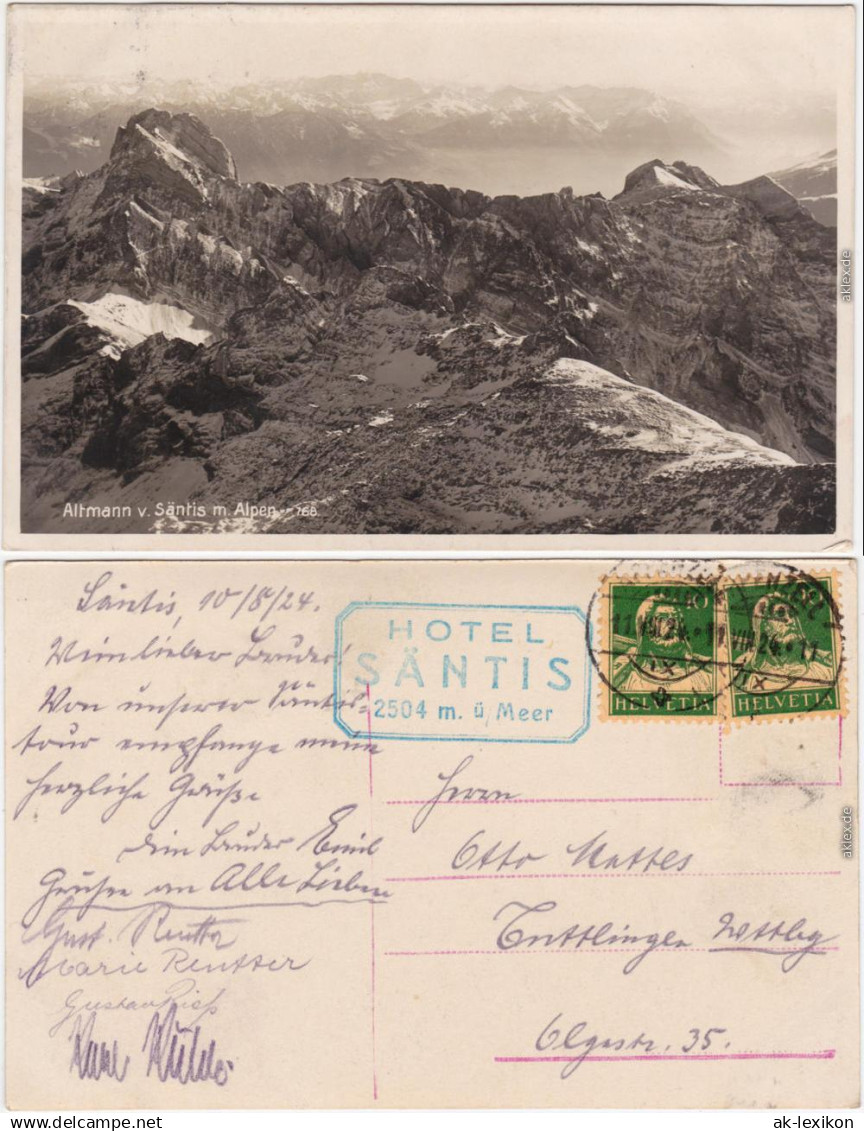 Altmann v. Säntis m. Alpen 768
aklex.de
Säntis, 10/8/24.
Mein lieber Bruder!
Von unserer Säntis-
tour empfange meine
herzliche Grüße
Dein Bruder Emil
Grüsse an Alle Lieben
Gust. Rentter
Marie Rentter
Gustav
Karl
HOTEL
SÄNTIS
2504 m. ü. Meer
11 VIII 24 - 11 VIII 24 - 11
HELVETIA
HELVETIA
Herrn
Otto Mattes
Tuttlingen Wttbg
Olgastr. 35.
aklex.de
ak-lexikon